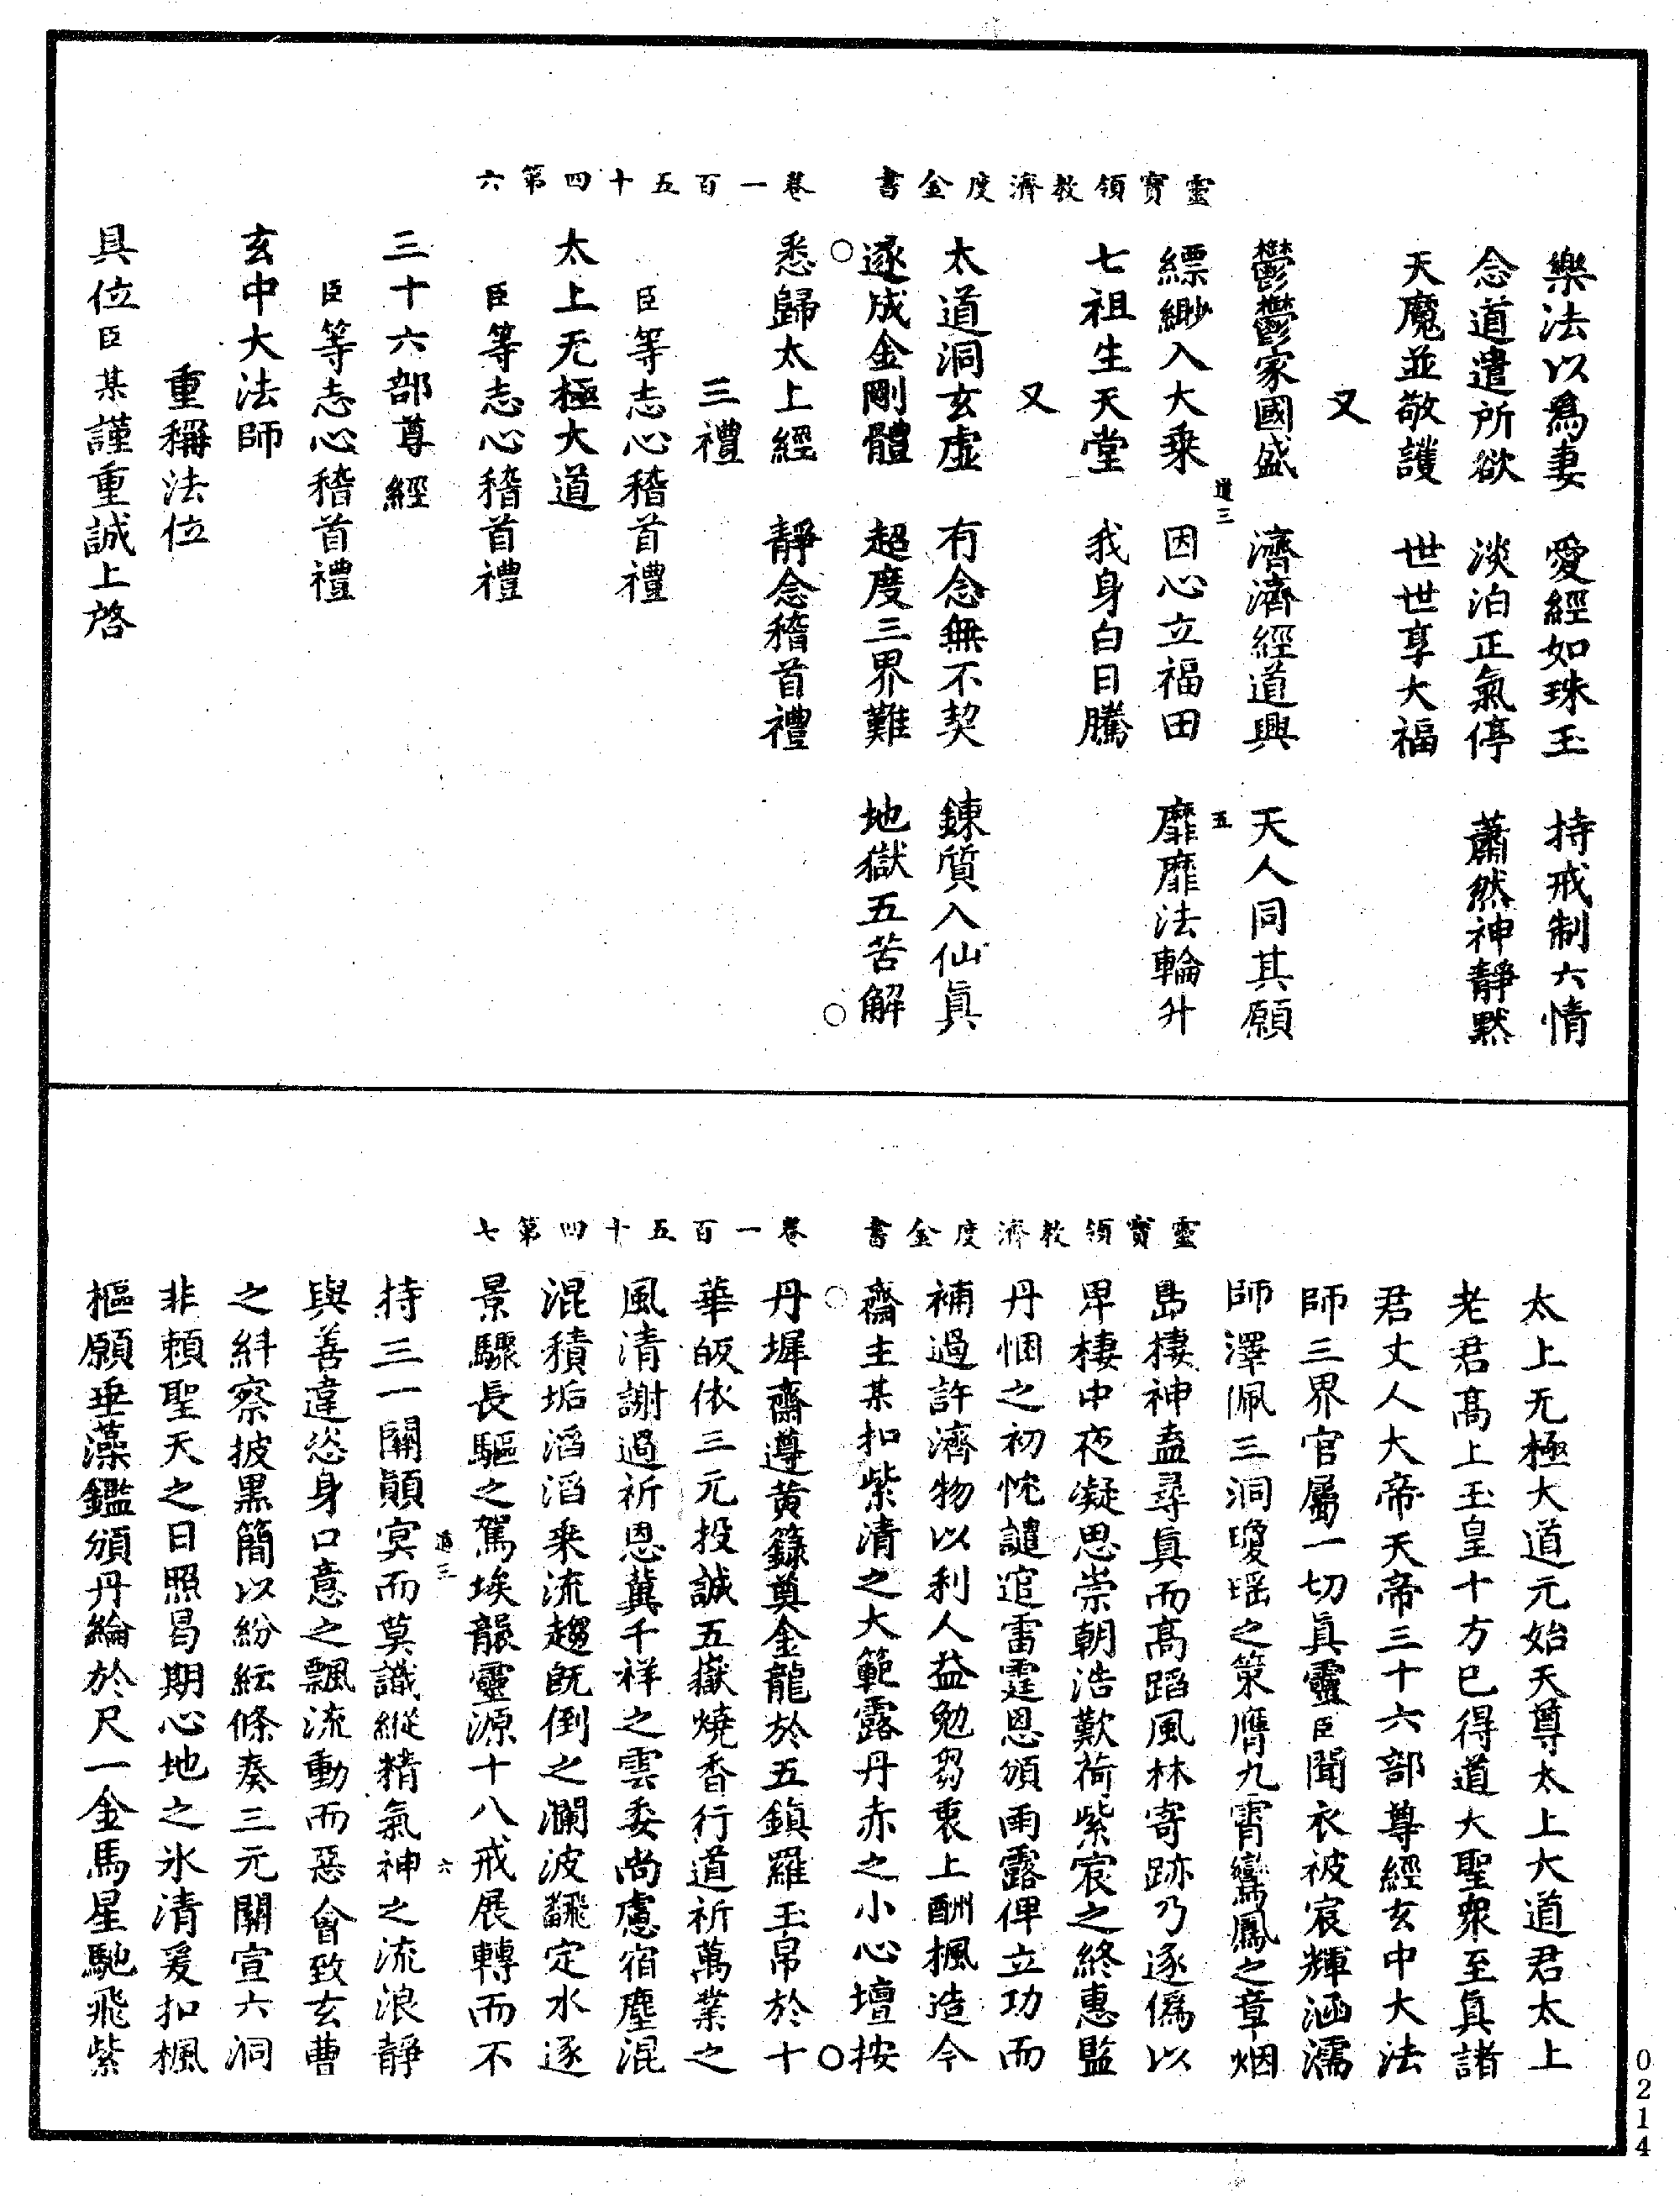 靈寶領教濟度金書　卷一百五十四第六
樂法以爲妻　愛經如珠玉　持戒制六情
念道遣所欲　淡泊正氣停　蕭然神靜默
天魔並敬護　世世享大福
又
鬱鬱家國盛　濟濟經道興　天人同其願
道三　五
縹緲入大乘　因心立福田　靡靡法輪升
七祖生天堂　我身白日騰
又
太道洞玄虛　有念無不契　鍊質入仙眞
遂成金剛體　超度三界難　地獄五苦解
悉歸太上經　靜念稽首禮
三禮
臣等志心稽首禮
太上无極大道
臣等志心稽首禮
三十六部尊經
臣等志心稽首禮
玄中大法師
重稱法位
具位臣某謹重誠上啓
靈寶領教濟度金書　卷一百五十四第七
太上无極大道元始天尊太上大道君太上
老君髙上玉皇十方已得道大聖衆至眞諸
君丈人大帝天帝三十六部尊經玄中大法
師三界官屬一切眞靈臣聞衣被宸輝涵濡
師澤佩三洞瓊瑶之策膺九霄鸞鳳之章烟
島棲神盍尋真而髙蹈風林寄跡乃逐僞以
卑棲中夜凝思崇朝浩歎荷紫宸之終惠監
丹悃之初忱譴逭雷霆恩頒雨露俾立功而
補過許濟物以利人益勉芻衷上酬楓造今
齋主某扣紫清之大範露丹赤之小心壇按
丹墀齋遵黄籙奠金龍於五鎮羅玉帛於十
華皈依三元投誠五嶽燒香行道祈萬業之
風清謝過祈恩冀千祥之雲委尚慮宿塵混
混積垢滔滔乘流趨旣倒之瀾波翻定水逐
景驟長驅之駕埃靉靈源十八戒展轉而不
持三一關顛冥而莫識縱精氣神之流浪靜
道三　六
與善違恣身口意之飄流動而惡會致玄曹
之紏察披黒簡以紛紜條奏三元關宣六洞
非頼聖天之日照曷期心地之氷清爰扣楓
樞願垂藻鑑頒丹綸於尺一金馬星馳飛紫
0214